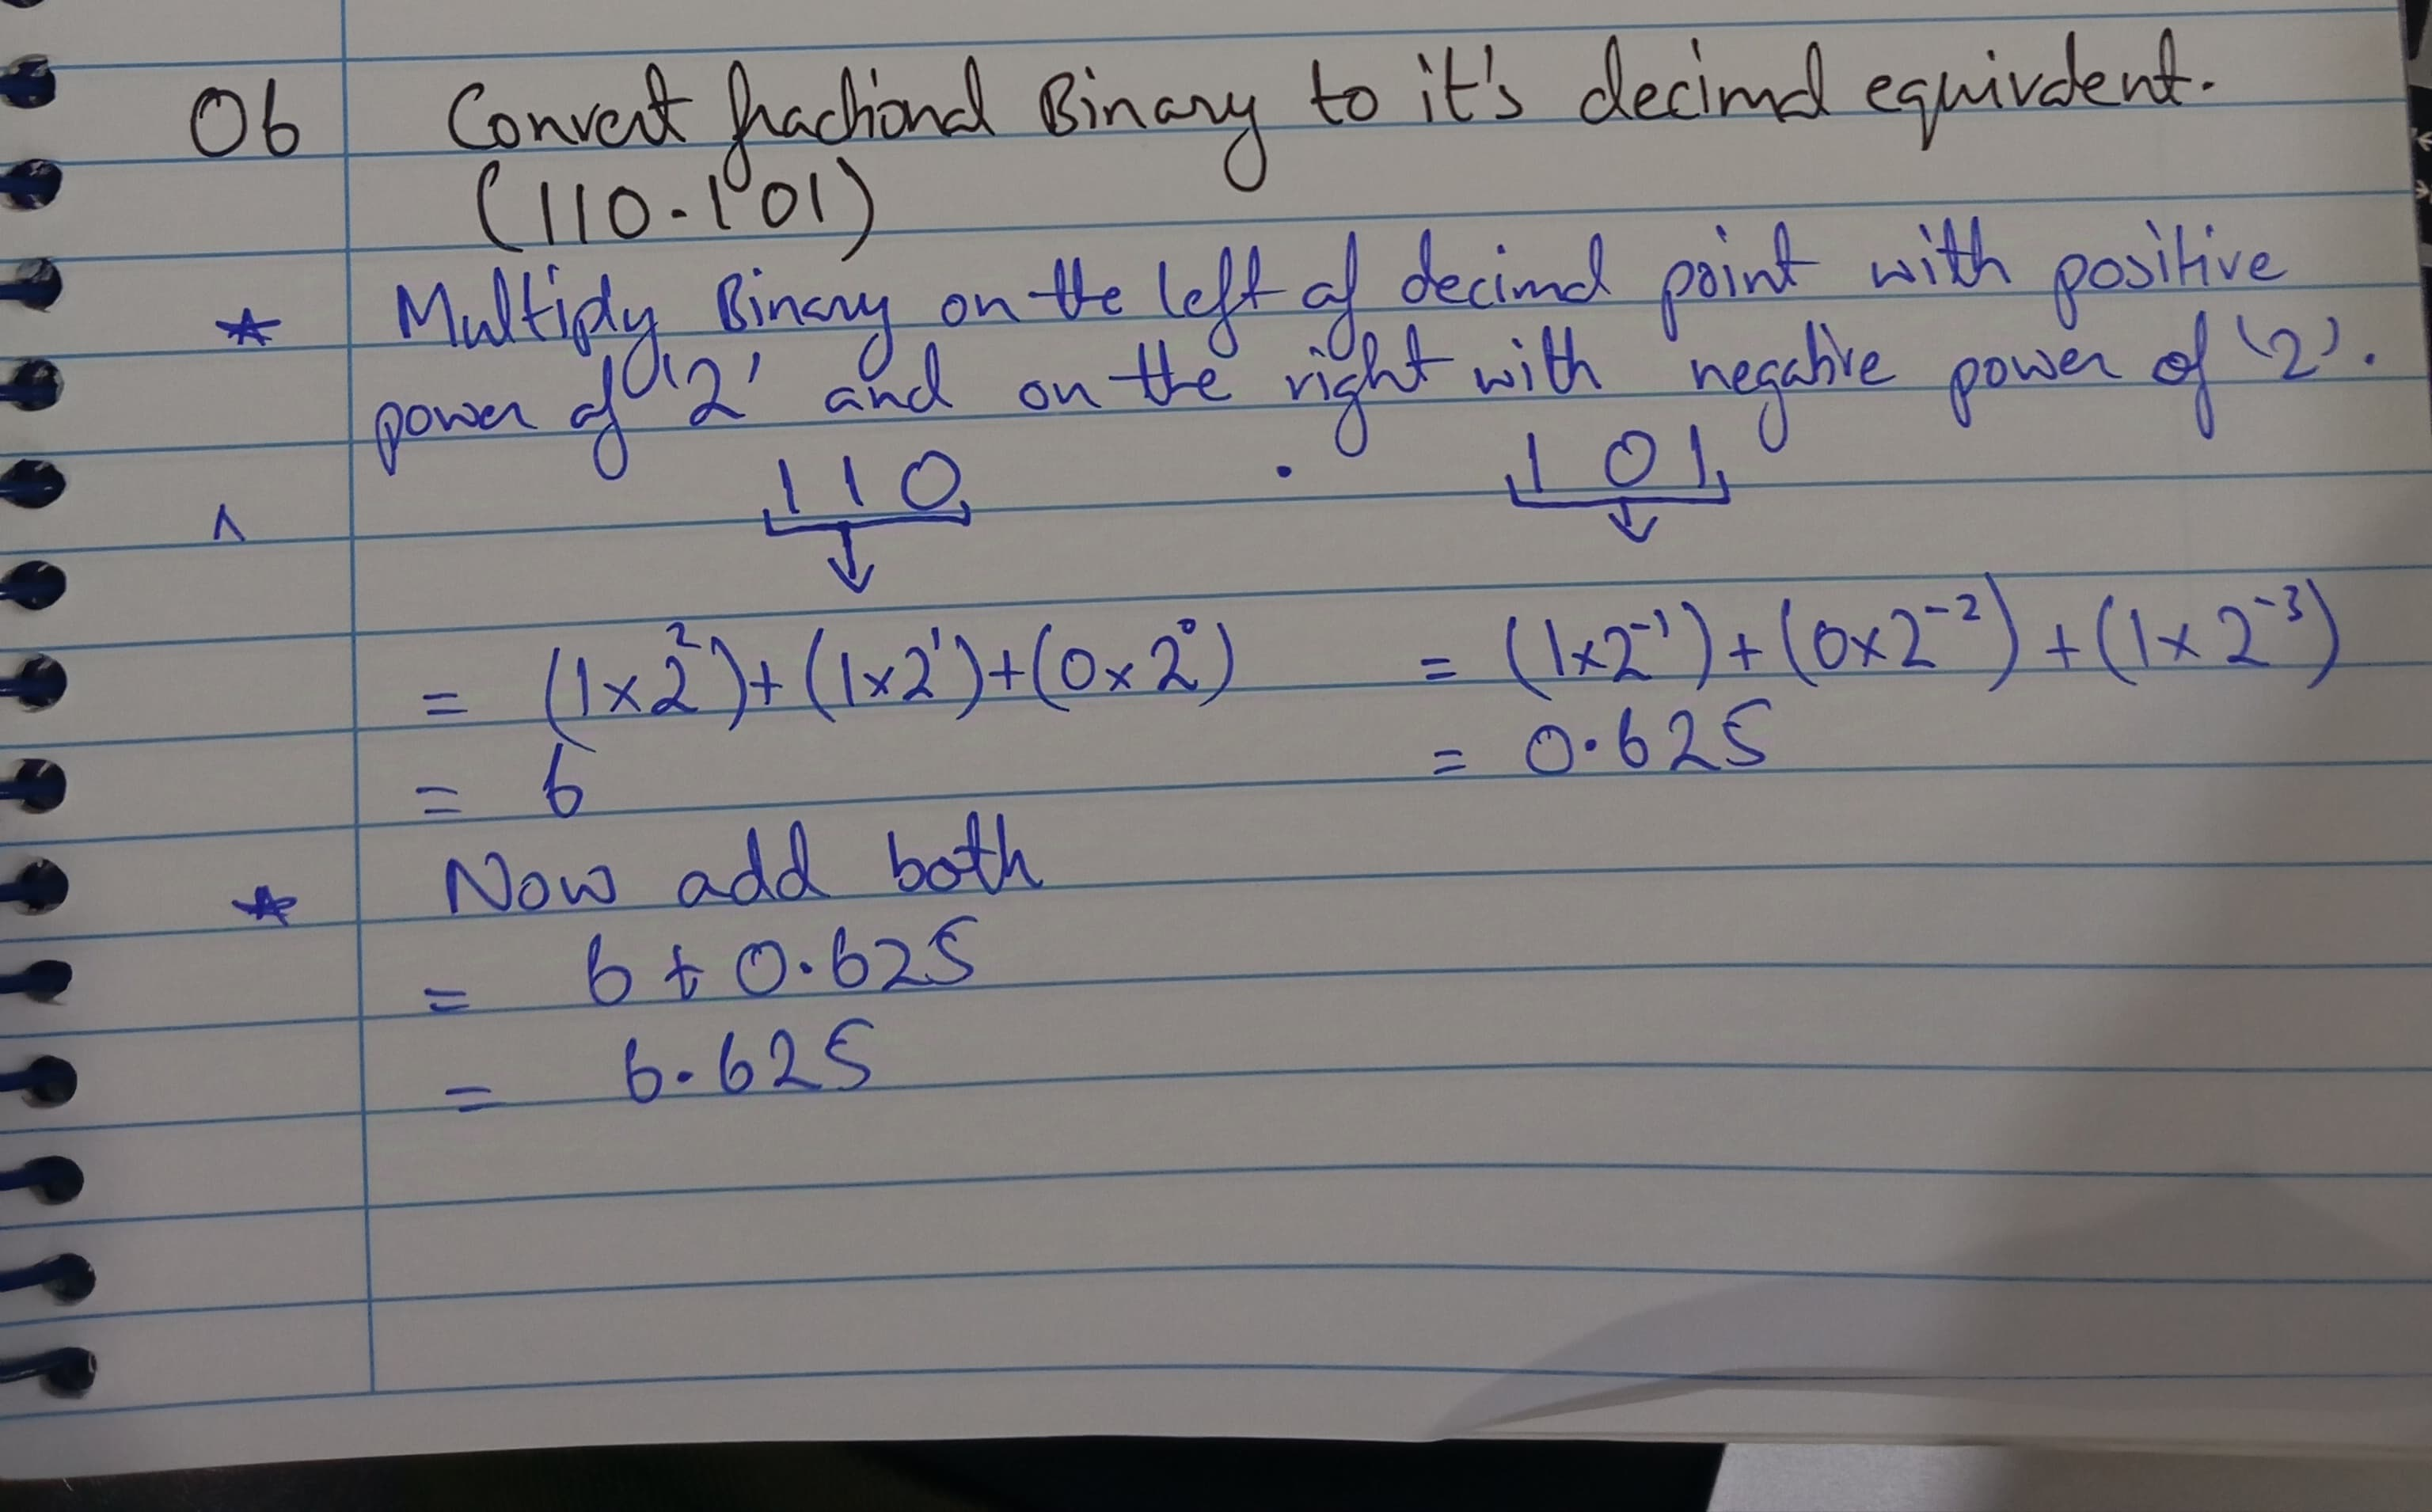 06 Convert fractional Binary to it's decimal equivalent.
(110.101)
* Multiply Binary on the left of decimal point with positive
power of '2' and on the right with negative power of '2'.
110 . 101
= (1x2²)+(1x2¹)+(0x2⁰) = (1x2⁻¹)+(0x2⁻²)+(1x2⁻³)
= 6 = 0.625
* Now add both
= 6+0.625
= 6.625